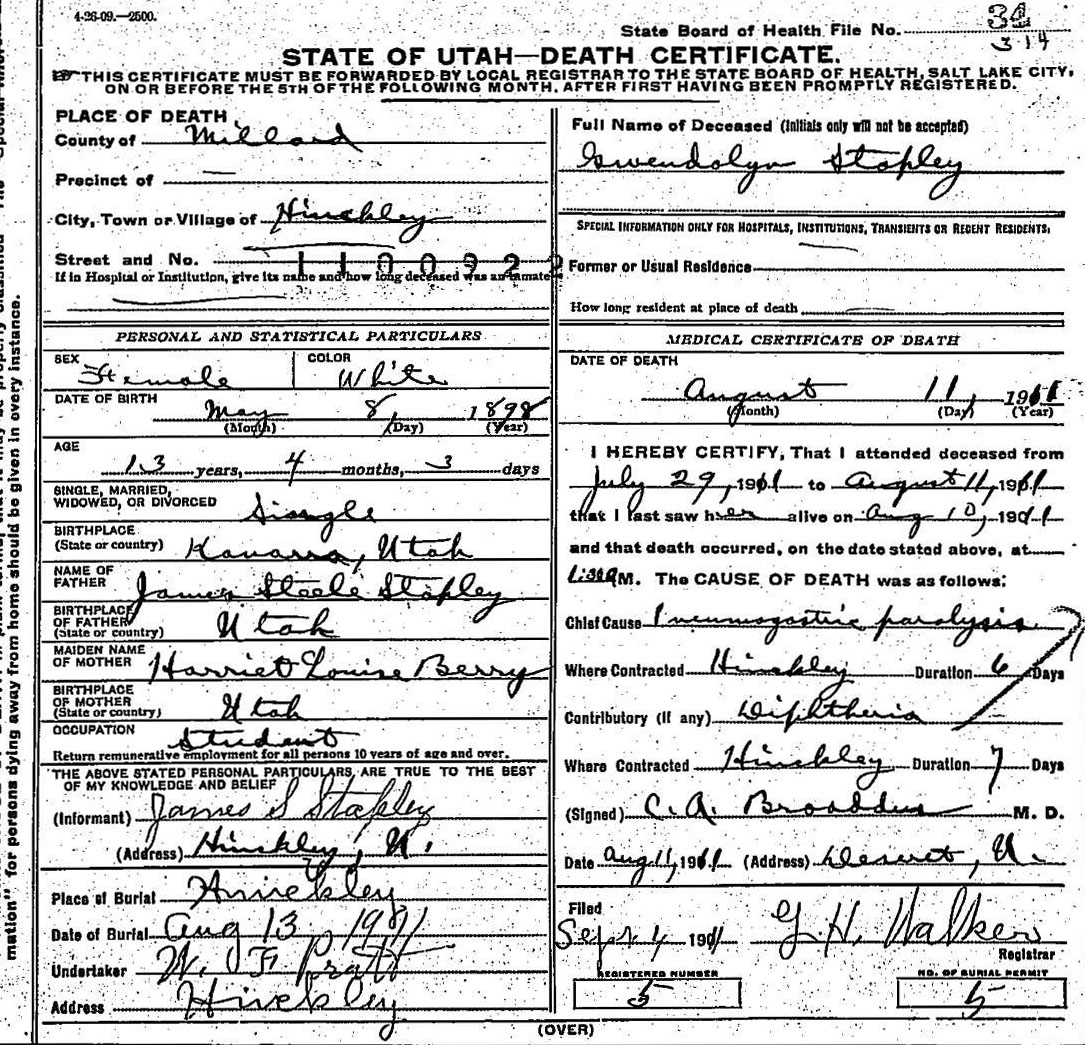 4-26-09.—2500.
State Board of Health File No. 34
314
STATE OF UTAH—DEATH CERTIFICATE.
THIS CERTIFICATE MUST BE FORWARDED BY LOCAL REGISTRAR TO THE STATE BOARD OF HEALTH, SALT LAKE CITY,
ON OR BEFORE THE 5TH OF THE FOLLOWING MONTH, AFTER FIRST HAVING BEEN PROMPTLY REGISTERED.
PLACE OF DEATH
County of Millard
Precinct of —
City, Town or Village of Hinckley
Street and No.
1100922
If in Hospital or Institution, give its name and how long deceased was an inmate
Full Name of Deceased (Initials only will not be accepted)
Gwendolyn Stapley
SPECIAL INFORMATION ONLY FOR HOSPITALS, INSTITUTIONS, TRANSIENTS OR RECENT RESIDENTS:
Former or Usual Residence
How long resident at place of death
PERSONAL AND STATISTICAL PARTICULARS
SEX Female
COLOR White
DATE OF BIRTH
May 8, 1898
(Month) (Day) (Year)
AGE
13 years, 4 months, 3 days
SINGLE, MARRIED,
WIDOWED, OR DIVORCED Single
BIRTHPLACE
(State or country) Kanarra, Utah
NAME OF
FATHER James Steele Stapley
BIRTHPLACE
OF FATHER
(State or country) Utah
MAIDEN NAME
OF MOTHER Harriet Louise Berry
BIRTHPLACE
OF MOTHER
(State or country) Utah
OCCUPATION Student
Return remunerative employment for all persons 10 years of age and over.
THE ABOVE STATED PERSONAL PARTICULARS ARE TRUE TO THE BEST
OF MY KNOWLEDGE AND BELIEF
(Informant) James S Stapley
(Address) Hinckley, U.
Place of Burial Hinckley
Date of Burial Aug 13, 1911
Undertaker W. F Pratt
Address Hinckley
MEDICAL CERTIFICATE OF DEATH
DATE OF DEATH
August 11, 1911
(Month) (Day) (Year)
I HEREBY CERTIFY, That I attended deceased from
July 29, 1911 to August 11, 1911
that I last saw her alive on Aug 10, 1911
and that death occurred, on the date stated above, at
1:30 A M. The CAUSE OF DEATH was as follows:
Chief Cause Pneumogastric paralysis
Where Contracted Hinckley Duration 6 Days
Contributory (if any) Diphtheria
Where Contracted Hinckley Duration 7 Days
(Signed) C. A. Broaddus M. D.
Date Aug 11, 1911 (Address) Deseret, U.
Filed
Sept. 4 1911 G. H. Walker
Registrar
REGISTERED NUMBER
5
NO. OF BURIAL PERMIT
5
(OVER)
mation" for persons dying away from home should be given in every instance.